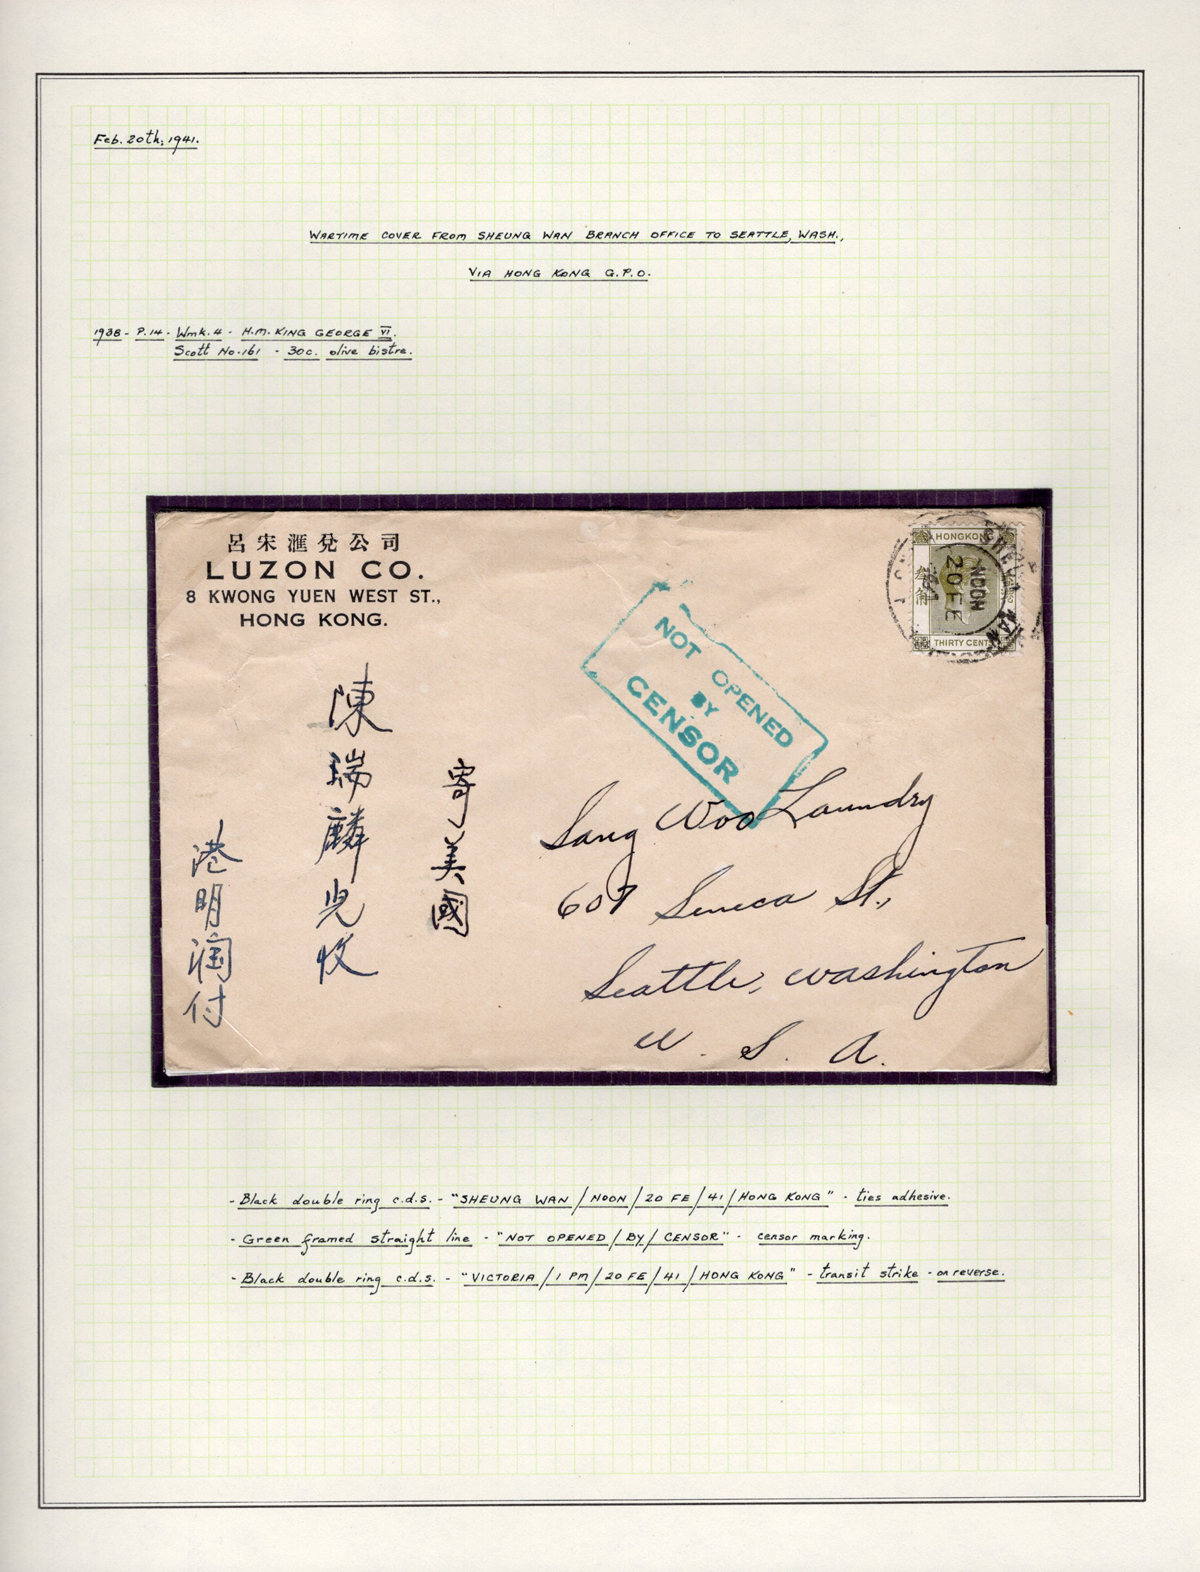 Feb. 20th, 1941.
WARTIME COVER FROM SHEUNG WAN BRANCH OFFICE TO SEATTLE, WASH.,
VIA HONG KONG G.P.O.
1938 - P.14 - Wmk.4 - H.M. KING GEORGE VI.
Scott No.161 - 30c. olive bistre.
呂宋滙兌公司
LUZON CO.
8 KWONG YUEN WEST ST.,
HONG KONG.
HONGKONG
THIRTY CENTS
SHEUNG WAN
NOON
20 FE
NOT OPENED
BY
CENSOR
寄美國
陳瑞麟兒收
港明潤付
Sang Woo Laundry
607 Seneca St.,
Seattle, Washington
U. S. A.
- Black double ring c.d.s. - "SHEUNG WAN / NOON / 20 FE / 41 / HONG KONG" - ties adhesive.
- Green framed straight line - "NOT OPENED / BY / CENSOR" - censor marking.
- Black double ring c.d.s. - "VICTORIA / 1 PM / 20 FE / 41 / HONG KONG" - transit strike - on reverse.